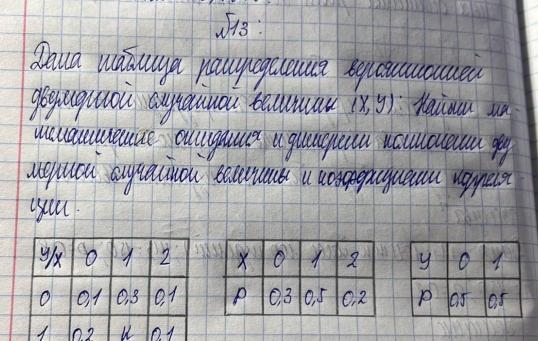 №13:
Дана таблица распределения вероятностей
двумерной случайной величины (X, Y): Найти ма
тематические ожидания и дисперсии компонент дву
мерной случайной величины и коэффициент корреля
ции.
Y/X 0 1 2
0 0,1 0,3 0,1
1 0,2 К 0,1
X 0 1 2
P 0,3 0,5 0,2
Y 0 1
P 0,5 0,5